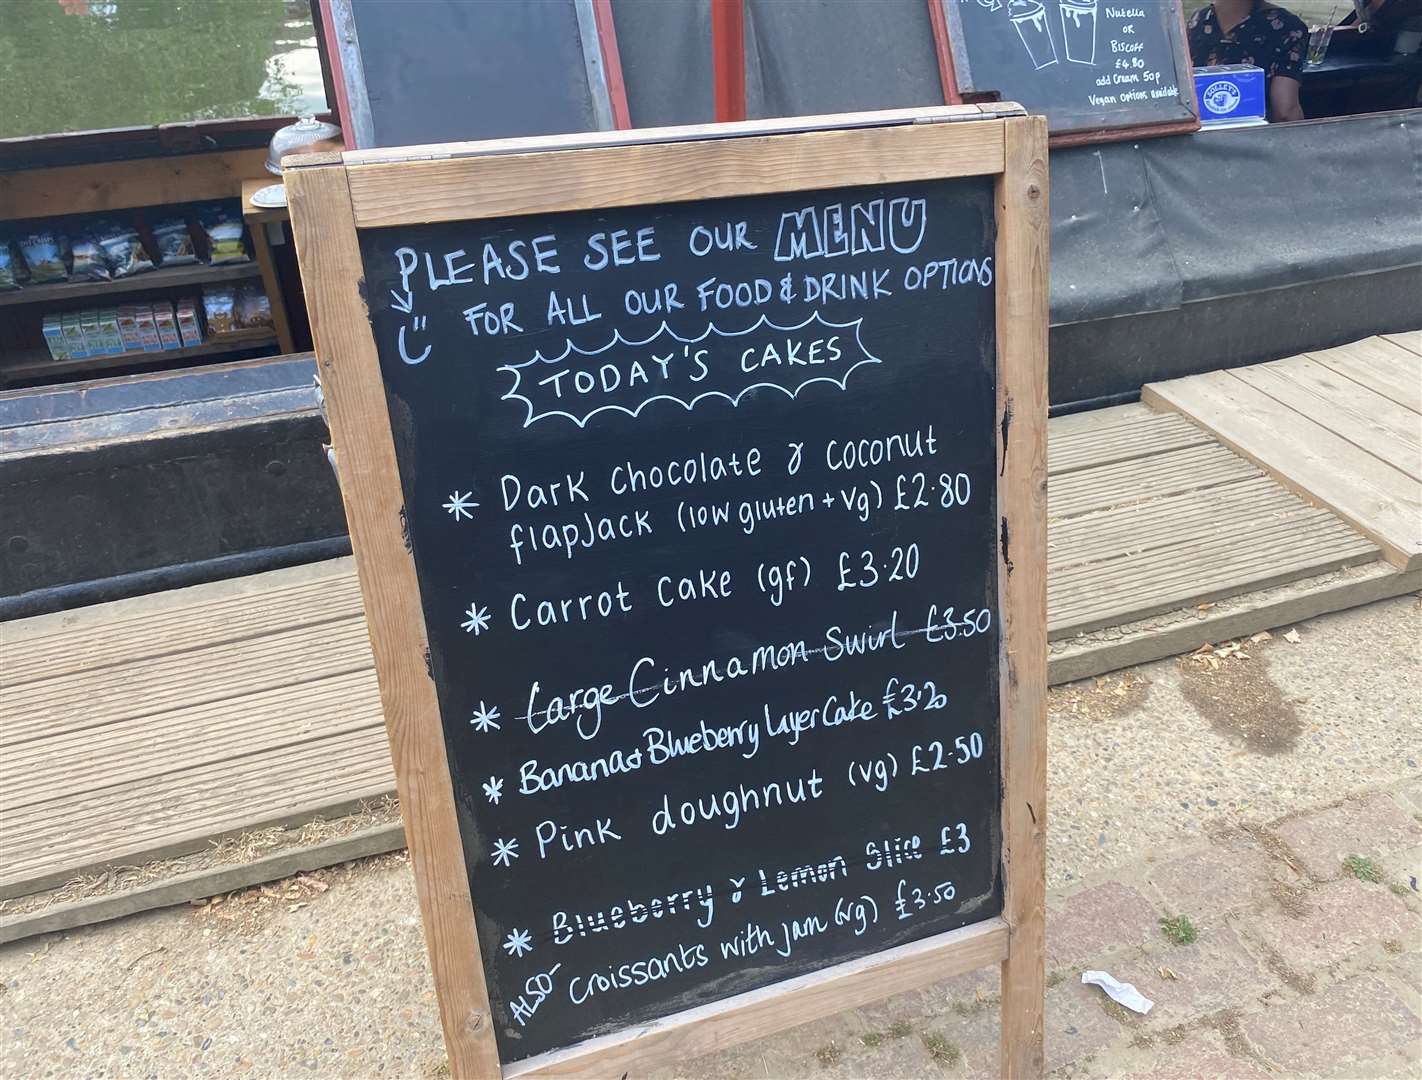 Nutella
OR
BISCOFF
£4.80
add Cream 50p
Vegan options available
PLEASE SEE OUR MENU
FOR ALL OUR FOOD & DRINK OPTIONS
TODAY'S CAKES
* Dark chocolate & coconut
flapjack (low gluten + vg) £2.80
* Carrot cake (gf) £3.20
* Large Cinnamon Swirl £3.50
* Banana & Blueberry Layer Cake £3.20
* Pink doughnut (vg) £2.50
* Blueberry & Lemon Slice £3
ALSO- Croissants with jam (vg) £3.50